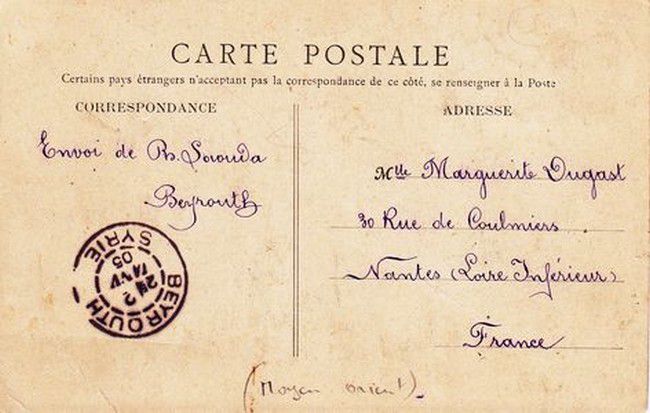 CARTE POSTALE
Certains pays étrangers n'acceptant pas la correspondance de ce côté, se renseigner à la Poste
CORRESPONDANCE
Envoi de Ph. Saouda
Beyrouth
BEYROUTH
SYRIE
05
ADRESSE
Mlle Marguerite Dugast
30 Rue de Coulmiers
Nantes (Loire Inférieur)
France
(Moyen orient).